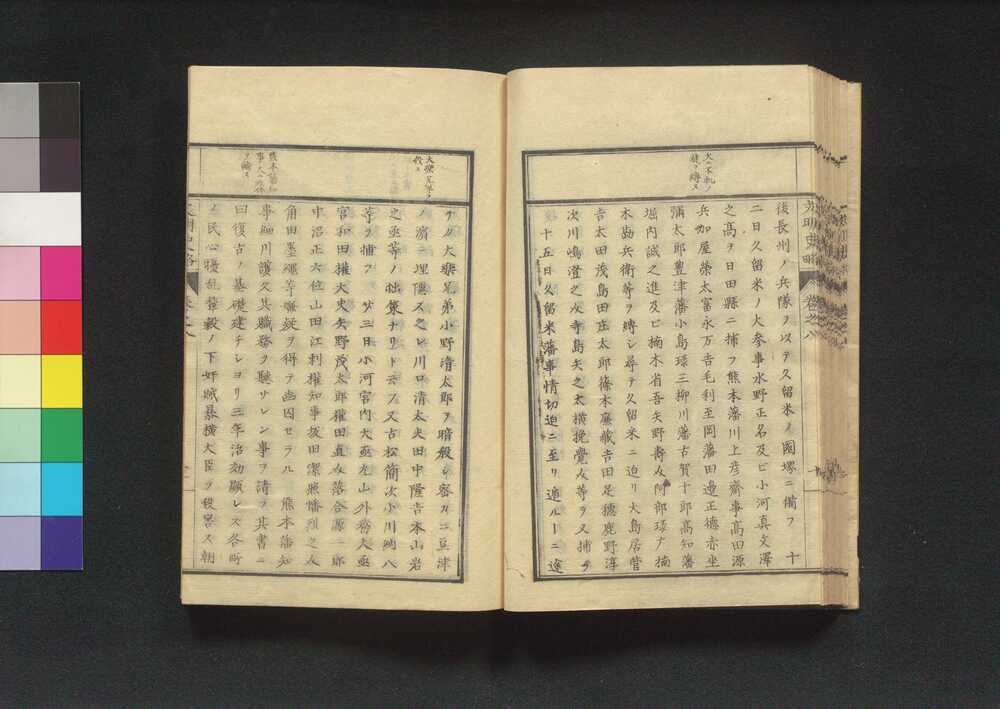 大ニ不軌ノ
徒ヲ縛ス
後長州ノ兵隊ヲ以テ久留米ノ國堺ニ備フ 十
二日久留米ノ大参事水野正名及ヒ小河真文澤
之高ヲ日田縣ニ捕フ熊本藩川上彦齋事高田源
兵加屋榮太富永万吉毛利至岡藩田邊正徳赤坐
彌太郎豊津藩小島琢三柳川藩古賀十郎高知藩
堀内誠之進及ヒ楠木省吾矢野壽 阿部琢 楠
木勘兵衛等ヲ縛シ尋テ久留米ニ迫リ大島居菅
吉太田茂島田庄太郎篠木廉藏吉田足穂鹿野淳
次川嶋澄之 寺島矢之太横 覺 等ヲ又捕フ
十五日久留米藩事情切迫ニ至リ遁ルーニ途
大樂兄弟ヲ
殺ス
ナク大樂兄弟小野清太郎ヲ暗殺シ密カニ豆津
ノ濱ニ埋隠ス之レ川口清太夫田中隆吉本山岩
之丞等ノ拙策ナリト云フ又古松簡次小川 八
等ヲ捕フ 三日小河宮内大丞丸山外務大丞
宮和田權大史矢野茂太郎權田直 落合源一郎
中沼正六位山田江刺權知事坂田潔 幡烈之
角田墨繩等嫌疑ヲ得テ幽囚セラル 熊本藩知
事細川護久其職務ヲ聽サレン事ヲ請フ其書ニ
曰復古ノ基礎建チシヨリ三年治効顕レス各所
ノ民心擾乱輦轂ノ下奸賊暴横大臣ヲ殺害ス朝
熊本藩知